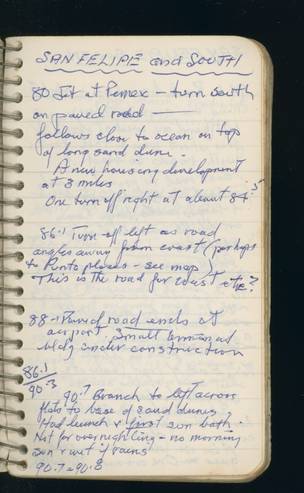 SAN FELIPE and SOUTH
80 Jct at Pemex - turn south
on paved road -
follows close to ocean on top
of long sand dune.
A new housing development
at 3 miles
One turn off right at about 84.5
86.1 Turn off left as road
angles away from coast (perhaps
to Punto - see map)
This is the road for coast etc?
88.1 Paved road ends at
airport. Small terminal
bldg under construction
86.1
90.3
90.7 Branch to left across
flats to base of sand dunes
Had lunch & first sun bath.
Not for overnighting - no morning
sun & wet if rains
90.7 = 90.8